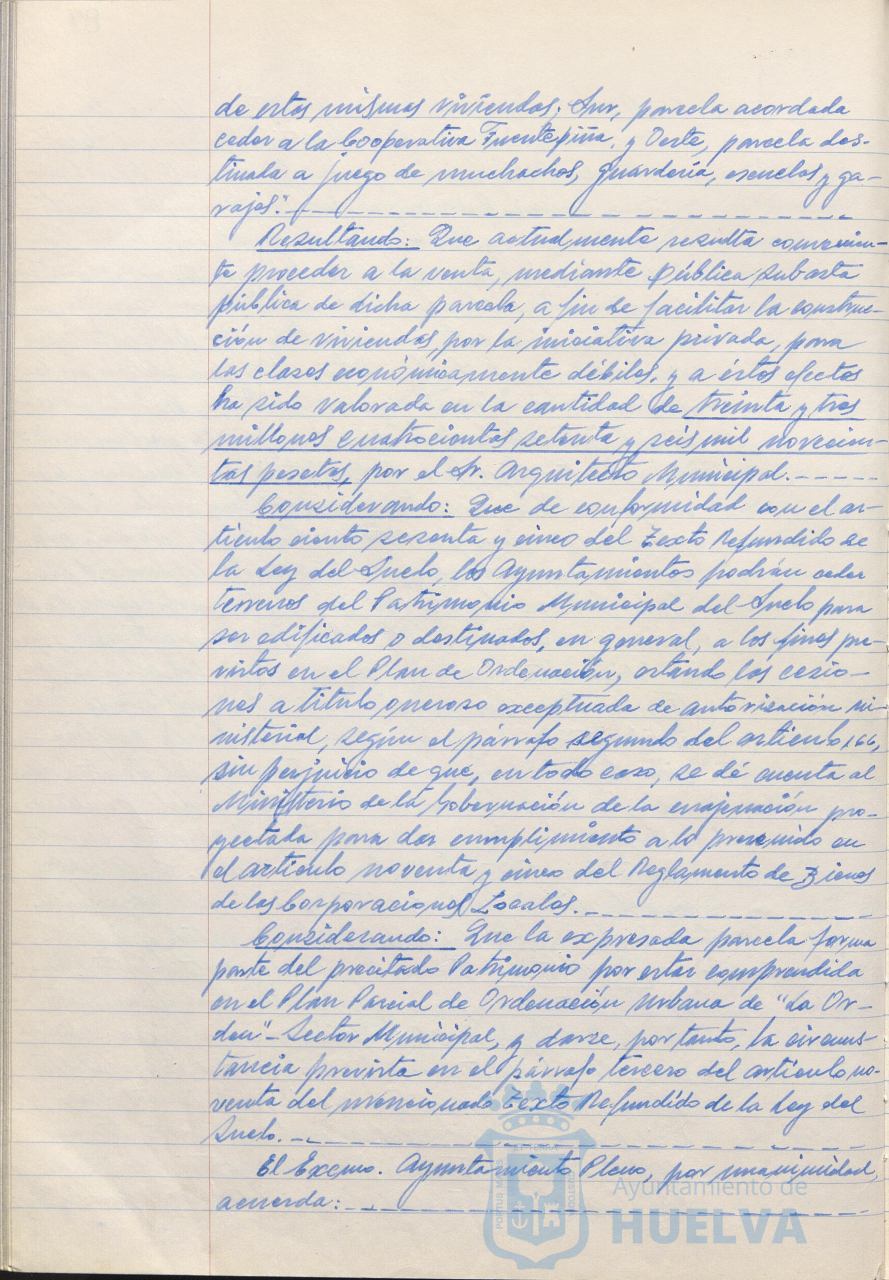 de estas mismas viviendas; Sur, parcela acordada
ceder a la Cooperativa Fuentepiña, y Oeste, parcela des-
tinada a juego de muchachos, guardería, escuelas y ga-
rajes".
Resultando: Que actualmente resulta convenien-
te proceder a la venta, mediante pública subasta
pública de dicha parcela, a fin de facilitar la construc-
ción de viviendas, por la iniciativa privada, para
las clases económicamente débiles, y a éstos efectos
ha sido valorada en la cantidad de treinta y tres
millones cuatrocientas setenta y seis mil novecien-
tas pesetas, por el Sr. Arquitecto Municipal.
Considerando: Que de conformidad con el ar-
tículo ciento sesenta y cinco del Texto Refundido de
la Ley del Suelo, los Ayuntamientos podrán ceder
terrenos del Patrimonio Municipal del Suelo para
ser edificados o destinados, en general, a los fines pre-
vistos en el Plan de Ordenación, estando las cesio-
nes a título oneroso exceptuada de autorización mi-
nisterial, según el párrafo segundo del artículo 166,
sin perjuicio de que, en todo caso, se dé cuenta al
Ministerio de la Gobernación de la enajenación pro-
yectada para dar cumplimiento a lo prevenido en
el artículo noventa y cinco del Reglamento de Bienes
de las Corporaciones Locales.
Considerando: Que la expresada parcela forma
parte del precitado Patrimonio por estar comprendida
en el Plan Parcial de Ordenación Urbana de "La Or-
den"-Sector Municipal, y darse, por tanto, la circuns-
tancia prevista en el párrafo tercero del artículo no-
venta del mencionado texto Refundido de la Ley del
Suelo.
El Excmo. Ayuntamiento Pleno, por unanimidad,
acuerda:
Ayuntamiento de
HUELVA